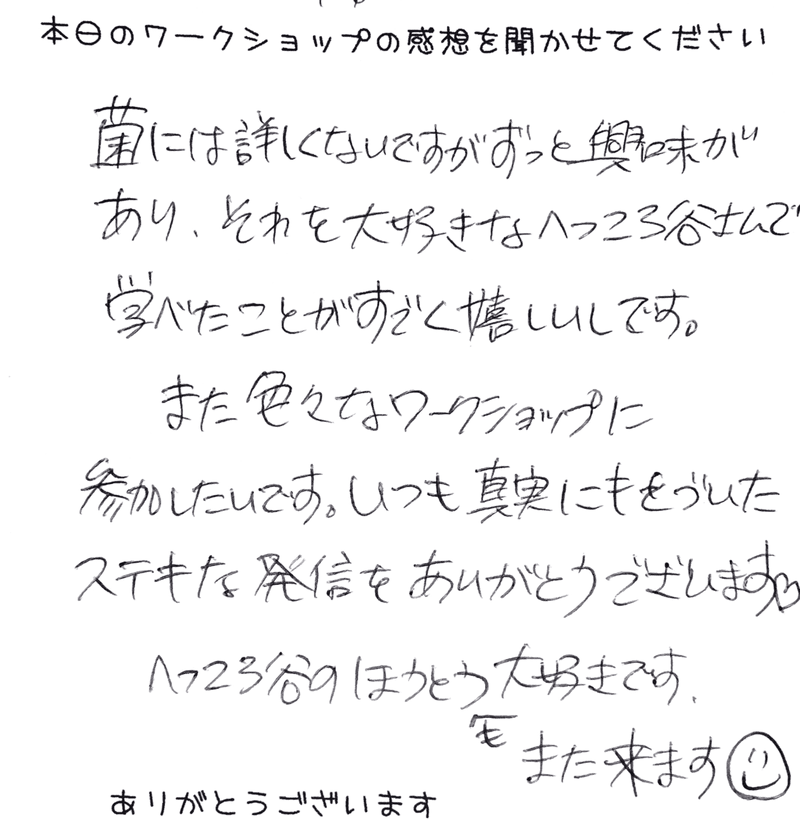 本日のワークショップの感想を聞かせてください
菌には詳しくないですがずっと興味が
あり、それを大好きなへっころ谷さんで
学べたことがすごく嬉しいしです。
また色々なワークショップに
参加したいです。いつも真実にもとづいた
ステキな発信をありがとうございます♡
へっころ谷のほうとう大好きです。
も
また来ます☺
ありがとうございます